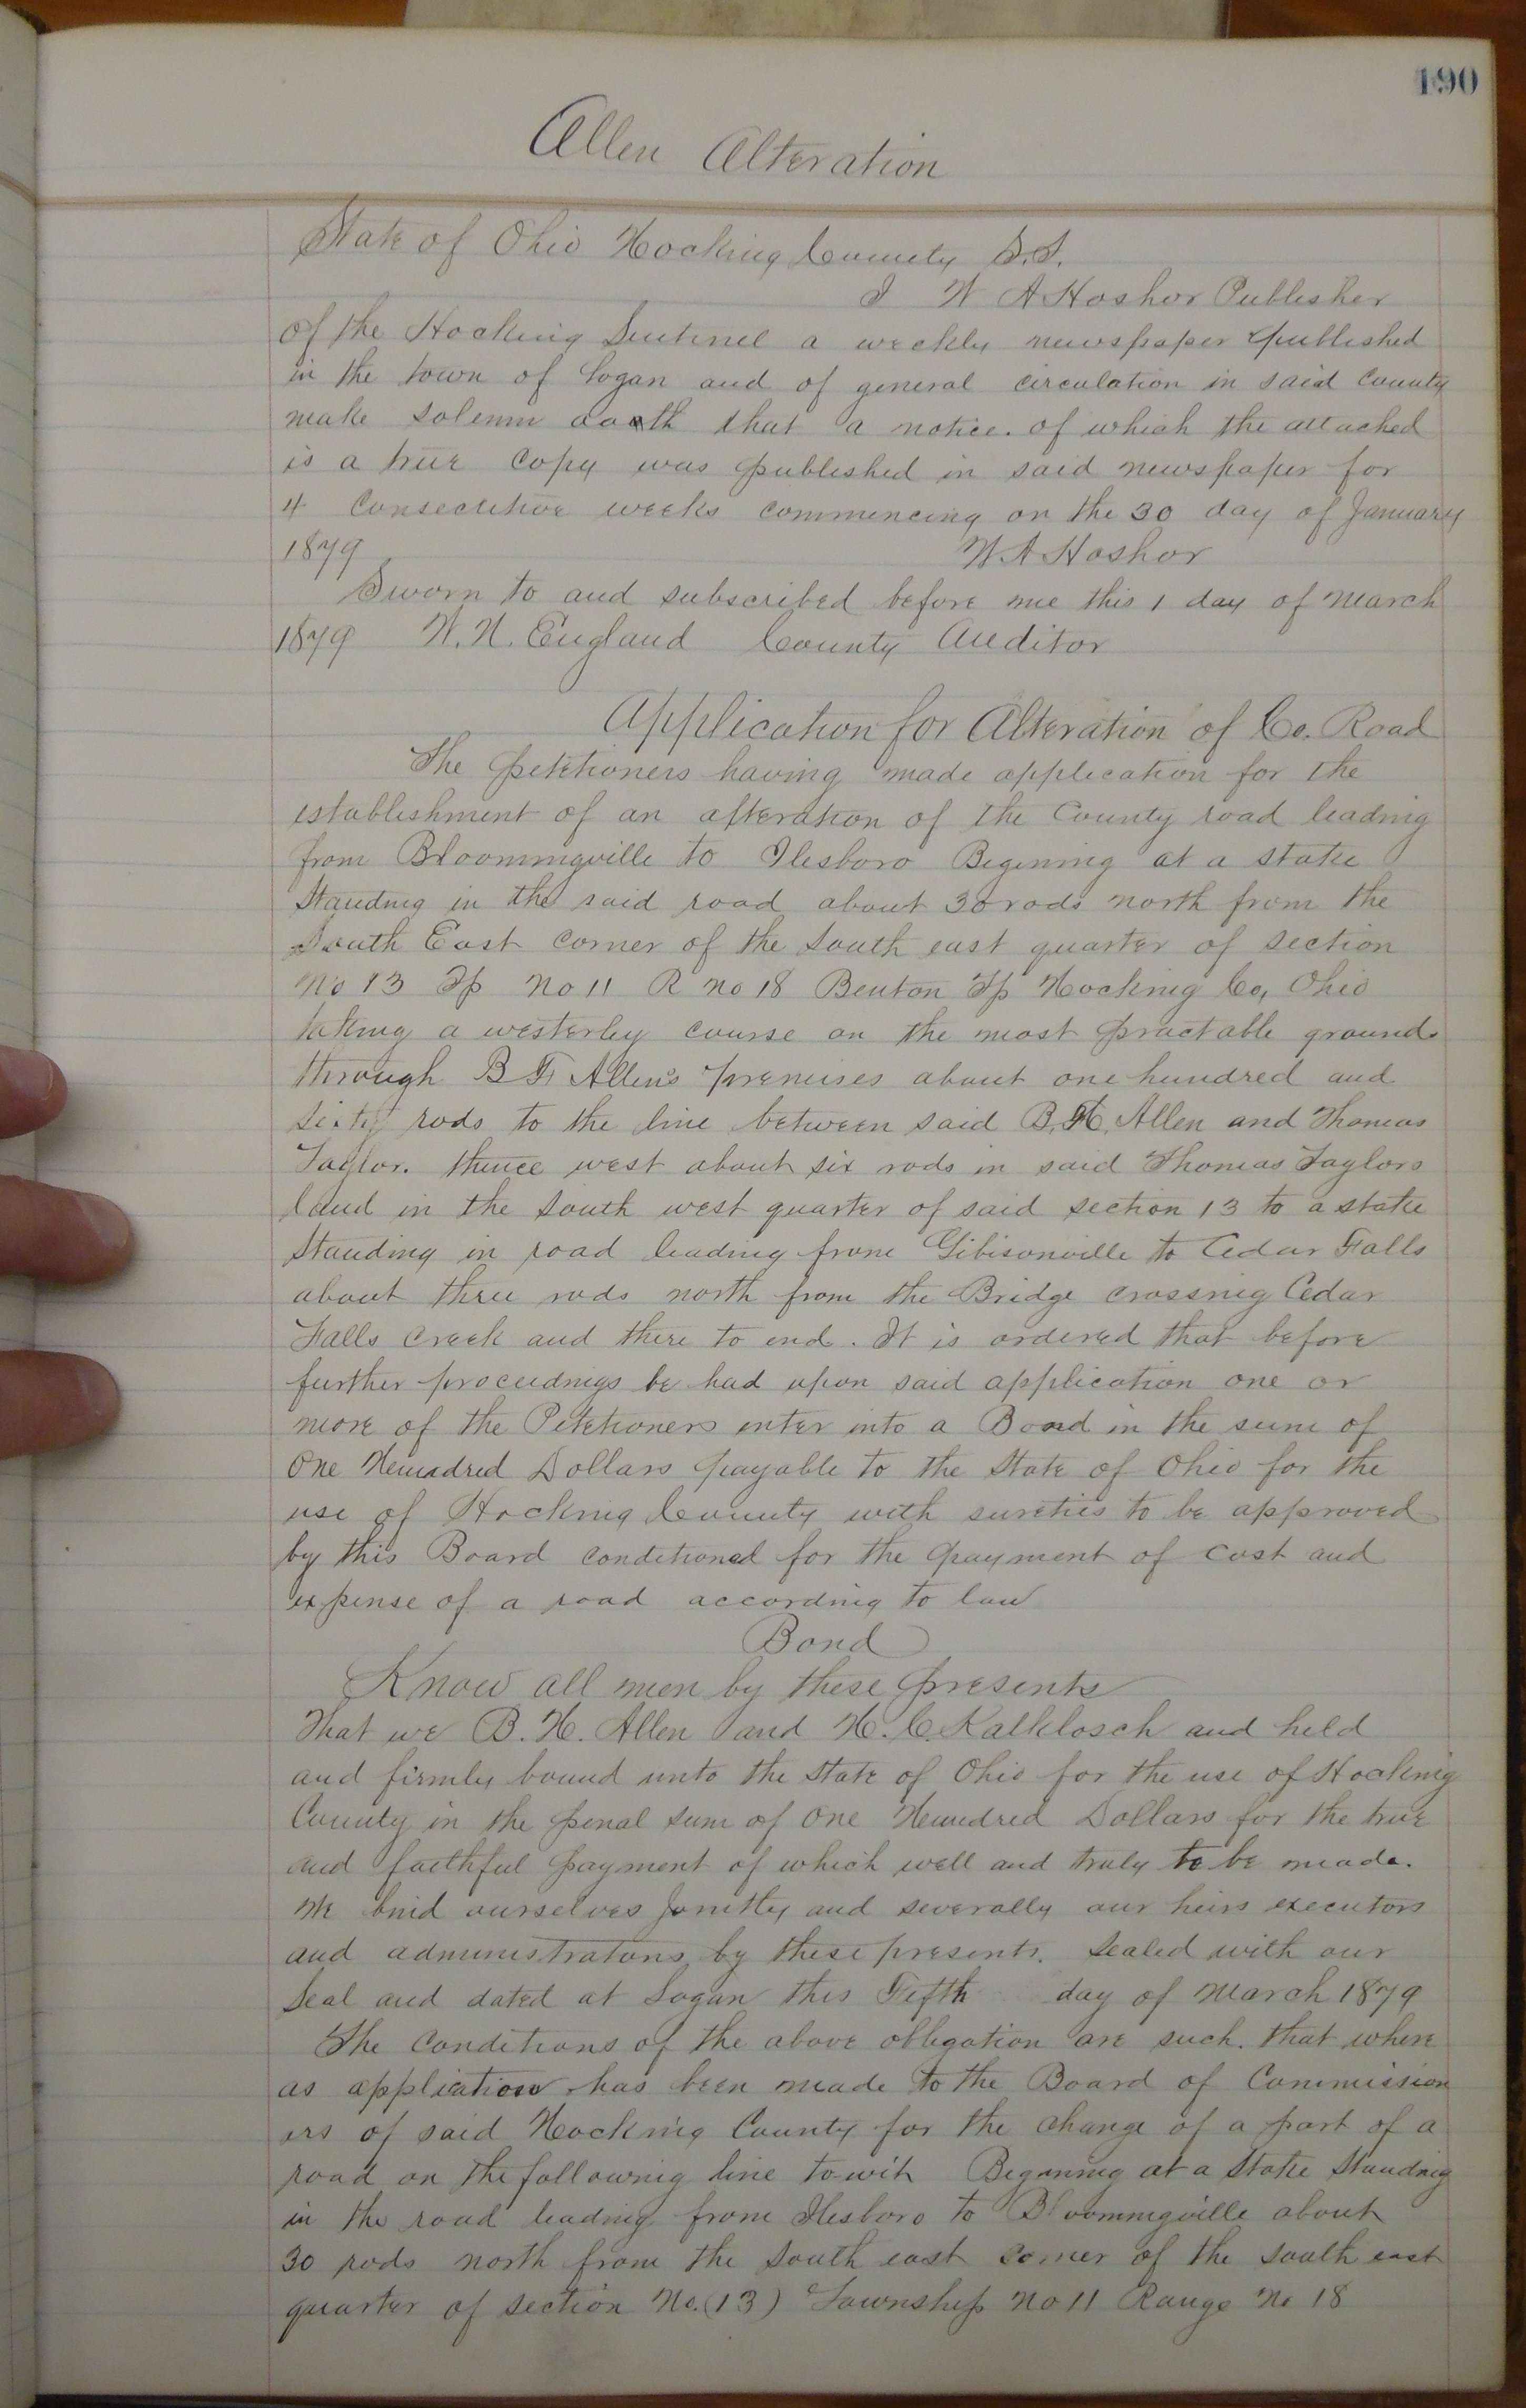 190
Allen Alteration
State of Ohio Hocking County S.S.
I W A Hoshor Publisher
of the Hocking Sentinel a weekly newspaper published
in the town of Logan and of general circulation in said County
make solemn oath that a notice. of which the attached
is a true copy was published in said newspaper for
4 Consecutive weeks commencing on the 30 day of January
1879 W A Hoshor
Sworn to and subscribed before me this 1 day of March
1879 W. N. England County Auditor
Application for Alteration of Co. Road
The petitioners having made application for the
establishment of an alteration of the County road leading
from Bloomingville to Ilesboro Begining at a stake
Standing in the said road about 30 rods north from the
South East corner of the South east quarter of section
No 13 Tp No 11 R no 18 Benton Tp Hocking Co, Ohio
taking a westerley course on the most practable ground
through B F Allen's premises about one hundred and
sixty rods to the line between said B. H. Allen and Thomas
Taylor. thence west about six rods in said Thomas Taylors
land in the South west quarter of said section 13 to a stake
standing in road leading from Gibisonville to Cedar Falls
about three rods north from the Bridge crossing Cedar
Falls Creek and there to end. It is ordered that before
further proceedings be had upon said application one or
more of the Petetioners enter into a Bond in the sum of
One Hundred Dollars payable to the State of Ohio for the
use of Hocking County with sureties to be approved
by this Board conditioned for the payment of cost and
expense of a road according to law
Bond
Know all men by these presents
That we B. H. Allen and H. C. Kalklosch and held
and firmly bound unto the State of Ohio for the use of Hocking
County in the penal sum of One Hundred Dollars for the true
and faithful payment of which well and truly to be made.
We bind ourselves Jointly and severally our heirs executors
and administrators by these presents. Sealed with our
Seal and dated at Logan this Fifth day of March 1879
The Conditions of the above obligation are such. that where
as application has been made to the Board of Commission
ers of said Hocking County for the change of a part of a
road on the following line to-wit Begining at a Stake Standing
in the road leading from Ilesboro to Bloomingville about
30 rods north from the South east corner of the South east
quarter of section No. (13) Township No 11 Range No 18